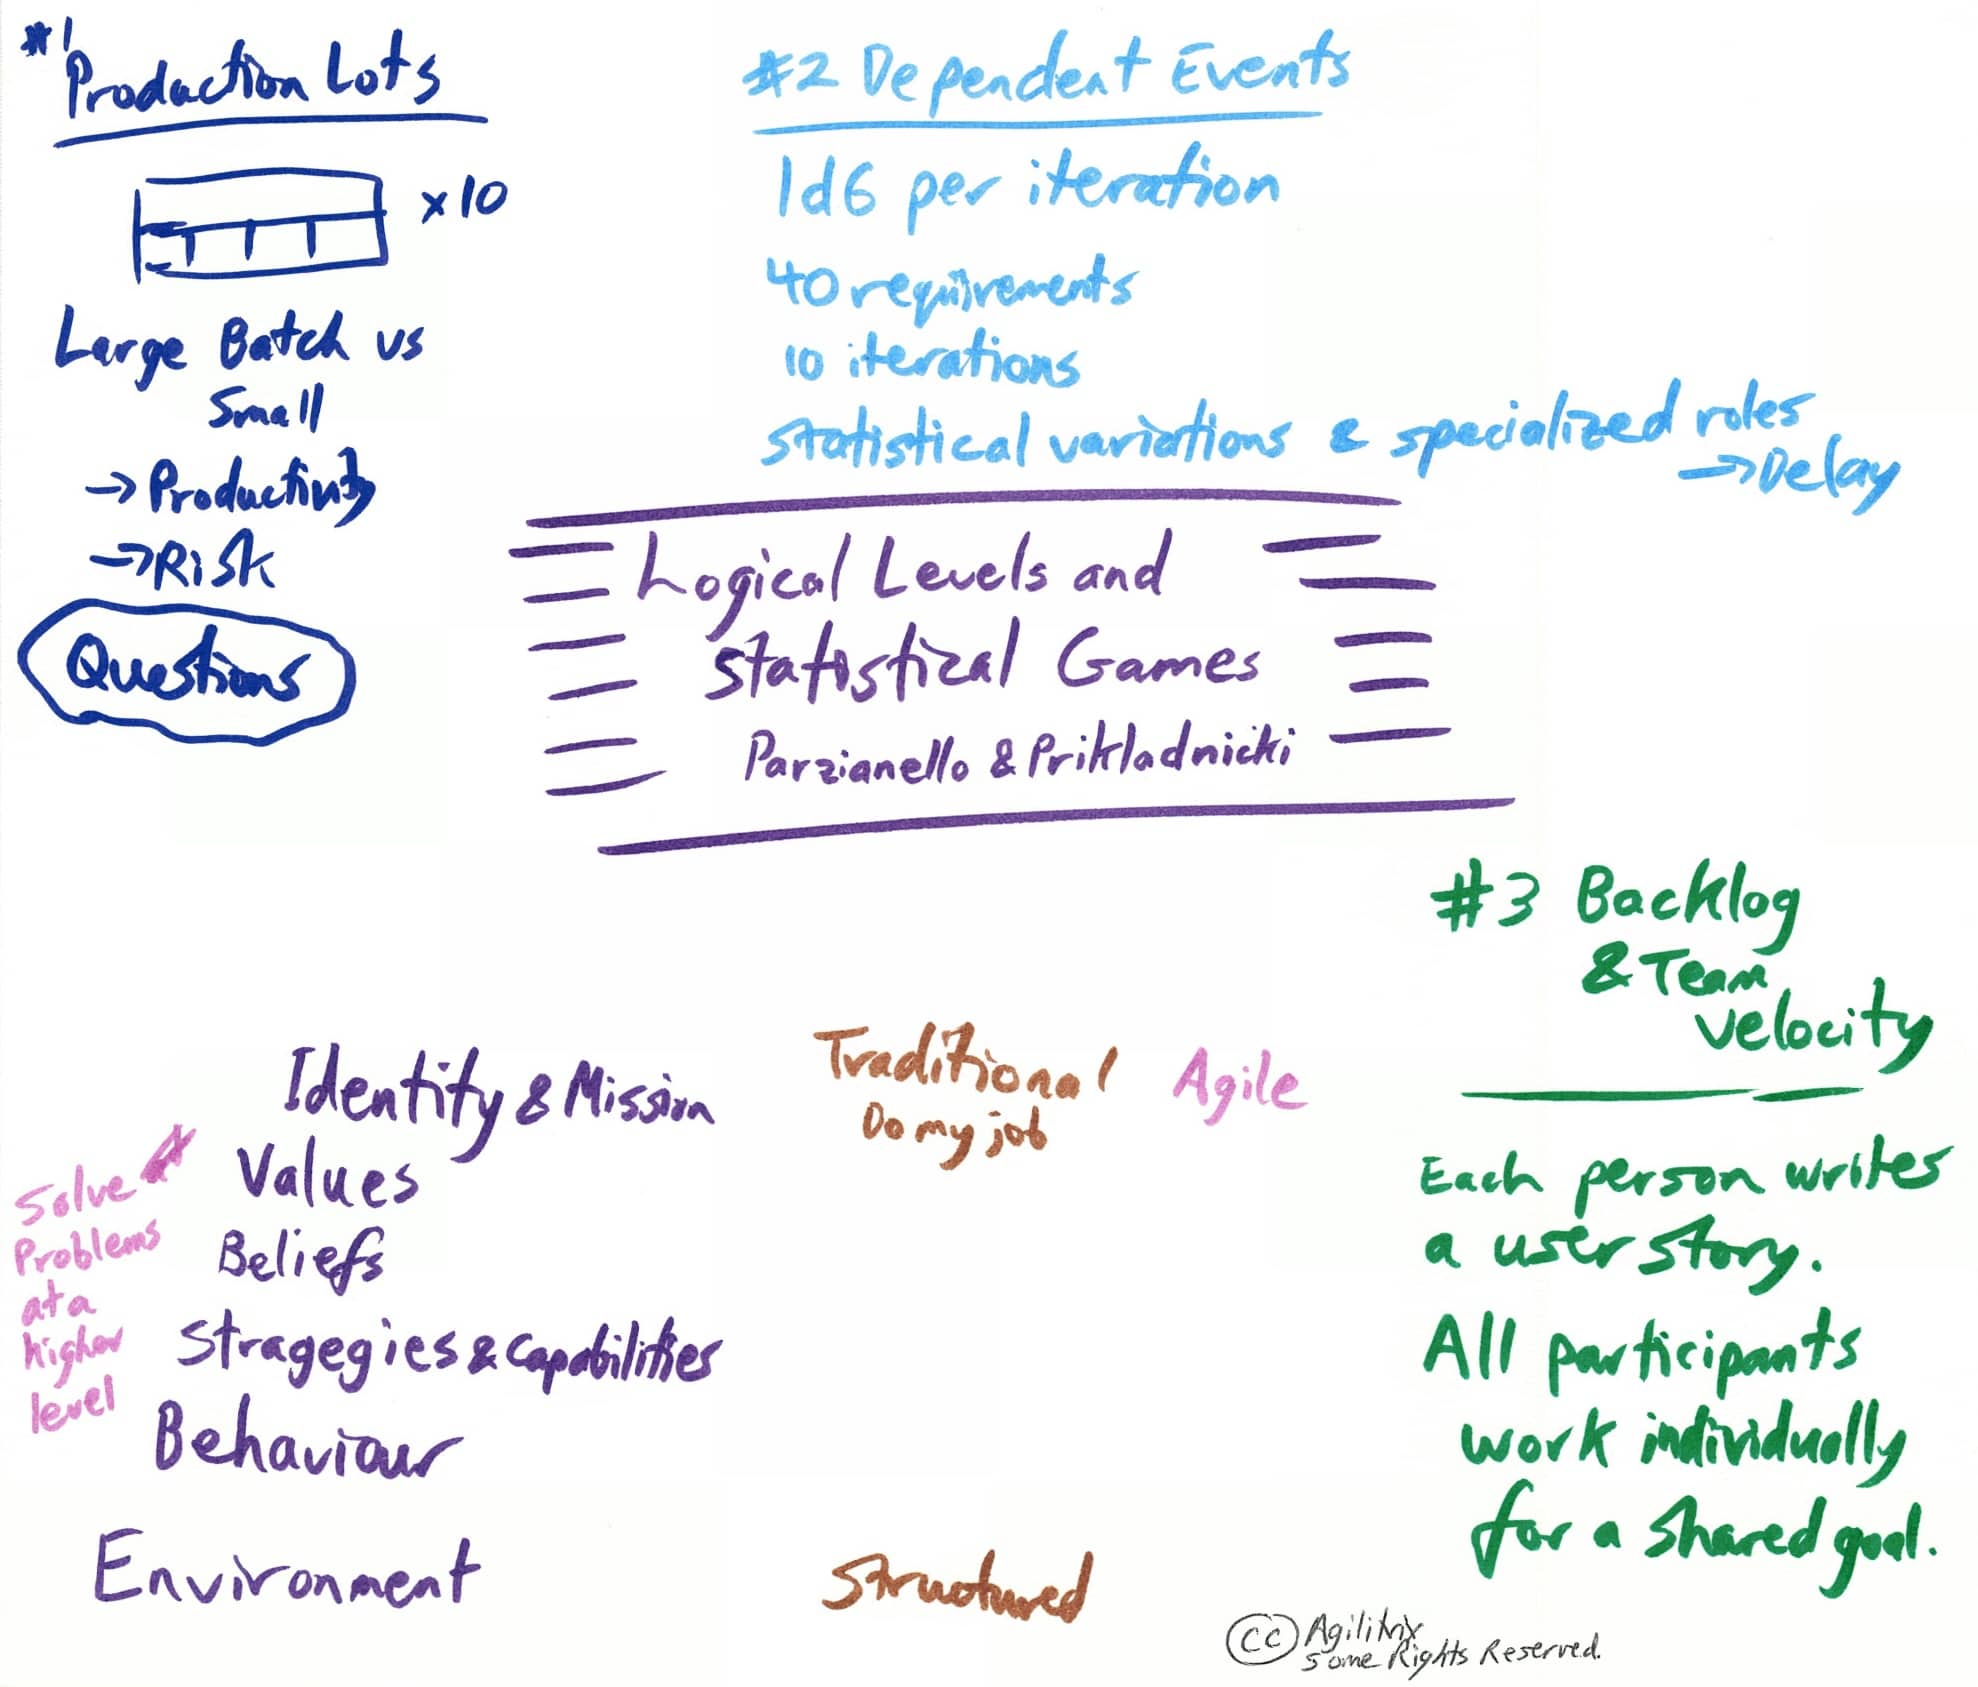 #1
Production Lots
x10
Large Batch vs
Small
→Productivity
→Risk
Questions
#2 Dependent Events
1d6 per iteration
40 requirements
10 iterations
statistical variations & specialized roles
→Delay
Logical Levels and
Statistical Games
Parzianello & Prikladnicki
#3 Backlog
& Team
velocity
Each person writes
a user story.
All participants
work individually
for a shared goal.
Identity & Mission
Values
Beliefs
Stragegies & Capabilities
Behaviour
Environment
Solve
Problems
at a
higher
level
Traditional
Do my job
Structured
Agile
cc Agilitrix
Some Rights Reserved.